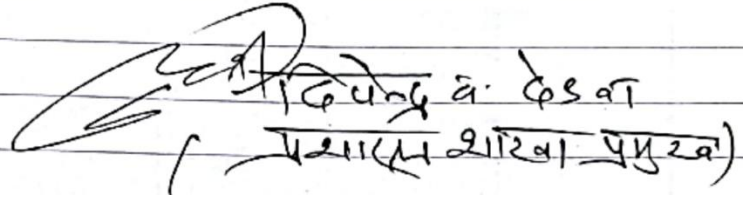 दिपेन्द्र व. देउवा
(प्रशासन शाखा प्रमुख)